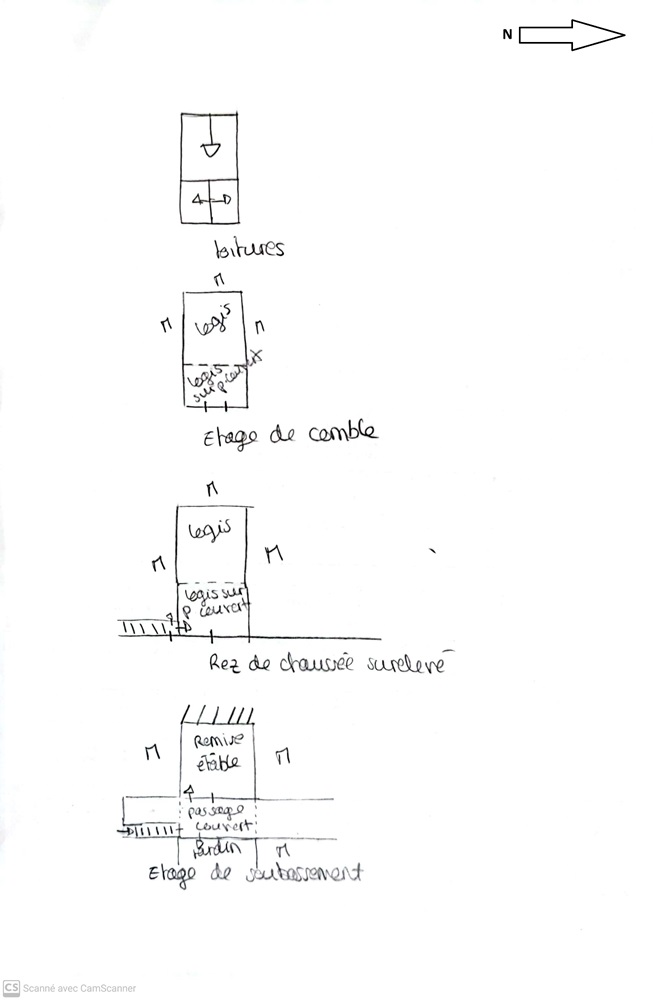 N
toitures
logis
logis
sur p couvert
Etage de comble
logis
logis sur
p couvert
Rez de chaussée surelevé
Remise
étable
passage
couvert
Jardin
Etage de soubassement
CS Scanné avec CamScanner